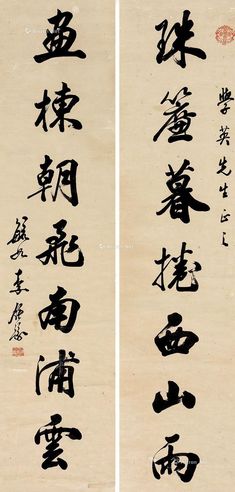 學英先生正之
珠簾暮捲西山雨
畫棟朝飛南浦雲
李